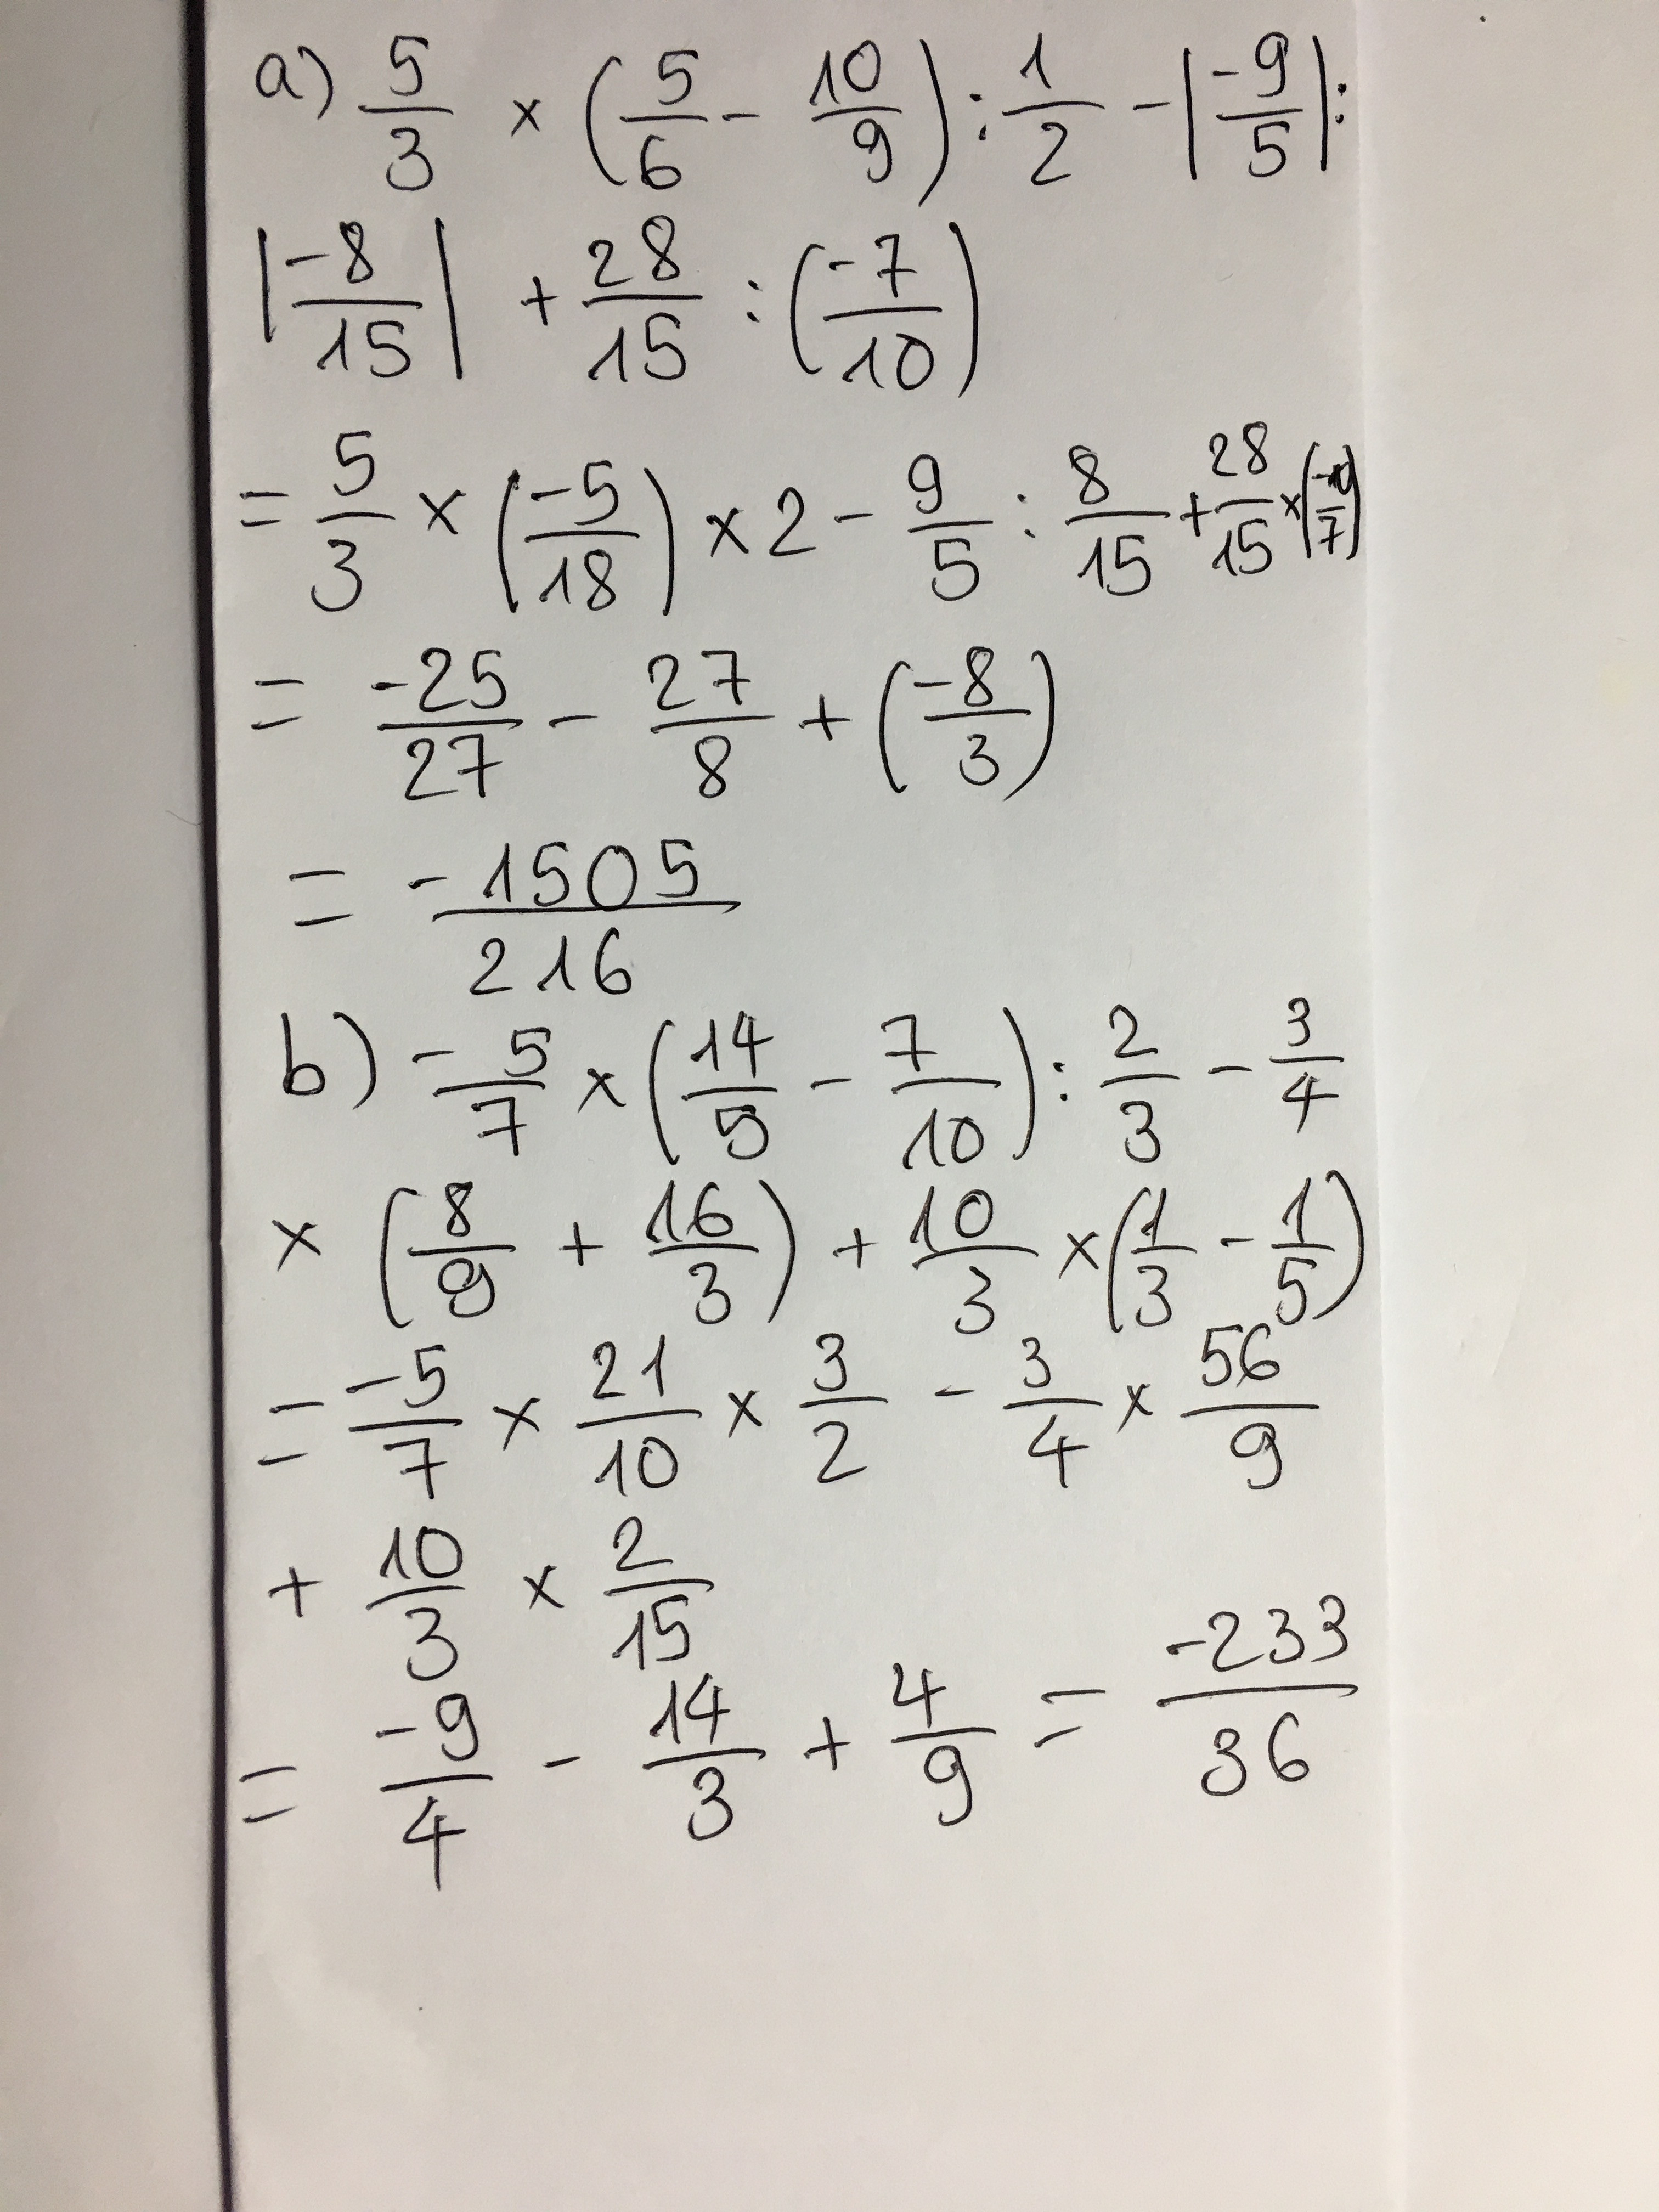 a) 5/3 × (5/6 - 10/9) : 1/2 - |-9/5| :
|-8/15| + 28/15 : (-7/10)
= 5/3 × (-5/18) × 2 - 9/5 : 8/15 + 28/15 × (-10/7)
= -25/27 - 27/8 + (-8/3)
= -1505/216
b) -5/7 × (14/5 - 7/10) : 2/3 - 3/4
× (8/9 + 16/3) + 10/3 × (1/3 - 1/5)
= -5/7 × 21/10 × 3/2 - 3/4 × 56/9
+ 10/3 × 2/15
= -9/4 - 14/3 + 4/9 = -233/36